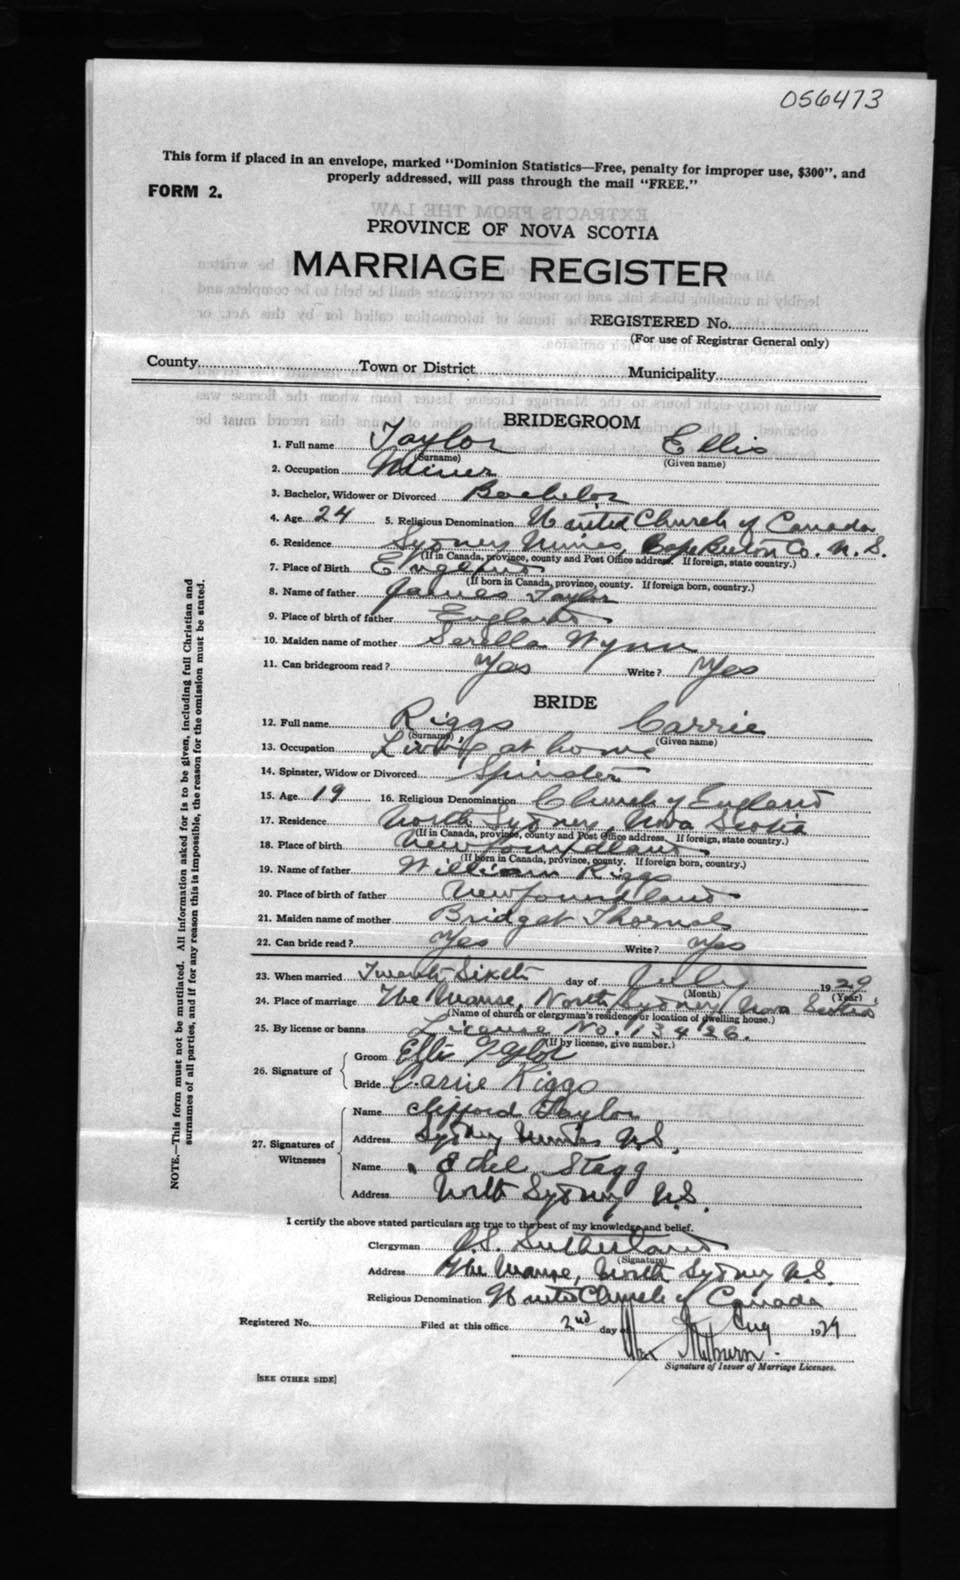 056473
This form if placed in an envelope, marked "Dominion Statistics—Free, penalty for improper use, $300", and
properly addressed, will pass through the mail "FREE."
FORM 2.
PROVINCE OF NOVA SCOTIA
MARRIAGE REGISTER
REGISTERED No.
(For use of Registrar General only)
County Town or District Municipality
BRIDEGROOM
1. Full name Taylor Ellis
(Surname) (Given name)
2. Occupation Miner
3. Bachelor, Widower or Divorced Bachelor
4. Age 24 5. Religious Denomination United Church of Canada
6. Residence Sydney Mines, Cape Breton Co. N.S.
(If in Canada, province, county and Post Office address. If foreign, state country.)
7. Place of Birth England
(If born in Canada, province, county. If foreign born, country.)
8. Name of father James Taylor
9. Place of birth of father England
10. Maiden name of mother Serella Wynn
11. Can bridegroom read? Yes Write? Yes
BRIDE
12. Full name Riggs Carrie
(Surname) (Given name)
13. Occupation Living at home
14. Spinster, Widow or Divorced Spinster
15. Age 19 16. Religious Denomination Church of England
17. Residence North Sydney, Nova Scotia
(If in Canada, province, county and Post Office address. If foreign, state country.)
18. Place of birth Newfoundland
(If born in Canada, province, county. If foreign born, country.)
19. Name of father William Riggs
20. Place of birth of father Newfoundland
21. Maiden name of mother Bridget Thornal
22. Can bride read? Yes Write? Yes
23. When married Twenty Sixth day of July 1929
(Month) (Year)
24. Place of marriage The Manse, North Sydney Nova Scotia
(Name of church or clergyman's residence or location of dwelling house.)
25. By license or banns License No. 13426.
(If by license, give number.)
26. Signature of
Groom Ellis Taylor
Bride Carrie Riggs
27. Signatures of Witnesses
Name Clifford Taylor
Address Sydney Mines N.S.
Name Ethel Stagg
Address North Sydney N.S.
I certify the above stated particulars are true to the best of my knowledge and belief.
Clergyman J.S. Sutherland
(Signature)
Address The Manse, North Sydney N.S.
Religious Denomination United Church of Canada
Registered No. Filed at this office 2nd day of Aug 1929
Signature of Issuer of Marriage Licenses.
[SEE OTHER SIDE]
NOTE.—This form must not be mutilated. All information asked for is to be given, including full Christian and
surnames of all parties, and if for any reason this is impossible, the reason for the omission must be stated.